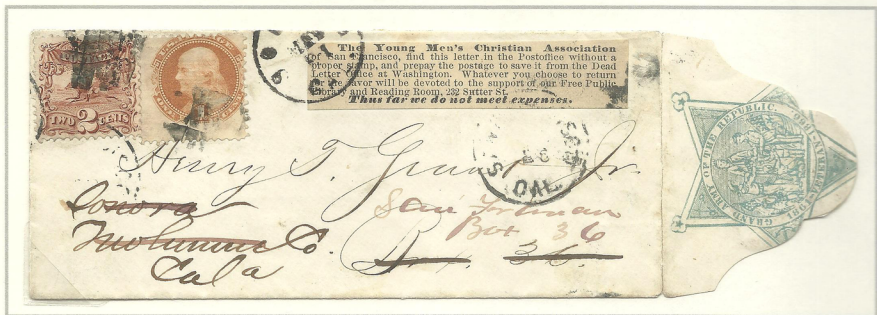 TWO 2 CENTS
The Young Men's Christian Association
of San Francisco, find this letter in the Postoffice without a
proper stamp, and prepay the postage to save it from the Dead
Letter Office at Washington. Whatever you choose to return
for the favor will be devoted to the support of our Free Public
Library and Reading Room, 232 Sutter St.
Thus far we do not meet expenses.
GRAND ARMY OF THE REPUBLIC
Henry T. Jr.
Sonora
Tuolumne Co.
Cala
San
Box 36
Box 36
CAL